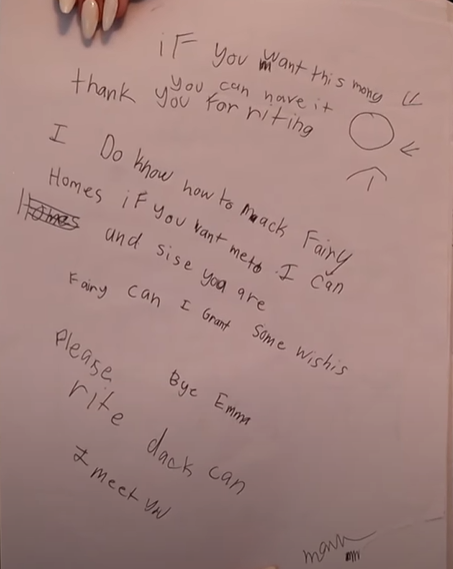 iF you want this mony
you can have it
thank you for riting
I Do know how to mack Fairy
Homes iF you want me to. I can
Homes
and sise you are
Fairy can I Grant some wishis
Bye Emma
Please
rite dack can
I meet you